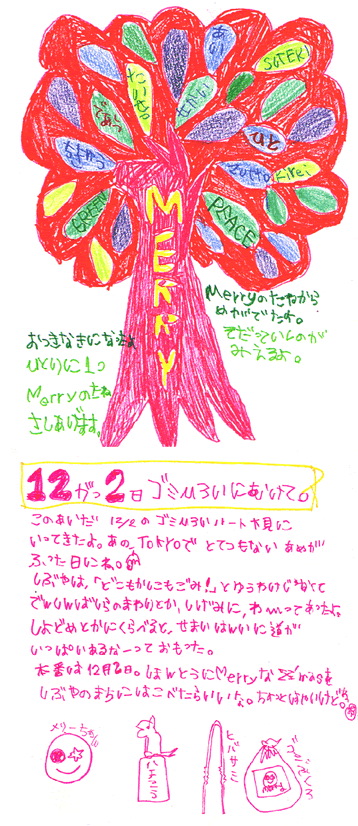 あい
SUTEKI
たいせつ
であう
せかい
ひと
Zutto
Kirei
GREEN
PEACE
MERRY
Merryのたねから
めがでたよ。
そだっていくのが
みえるよ。
おっきなきになぁれ
ひとりに1つ
Merryのたね
さしあげます。
12がつ2日 ゴミひろいにむけて。
このあいだ 12/2の ゴミひろいルートを見に
いってきたよ。あの、TOKYOで とてつもない あめが
ふった日にね。
しぶやは、「どこもかしこもごみ！」とゆうわけじゃなくて
しげみに、
しおどめとかにくらべると、せまいはんいに道が
いっぱいあるなーっておもった。
本番は12月2日。ほんとうにMerryなX'masを
しぶやのまちにはこべたらいいな。ちょっとはやいけど。
メリーちゃん
ハチ公
ヒバサミ
ゴミぶくろ